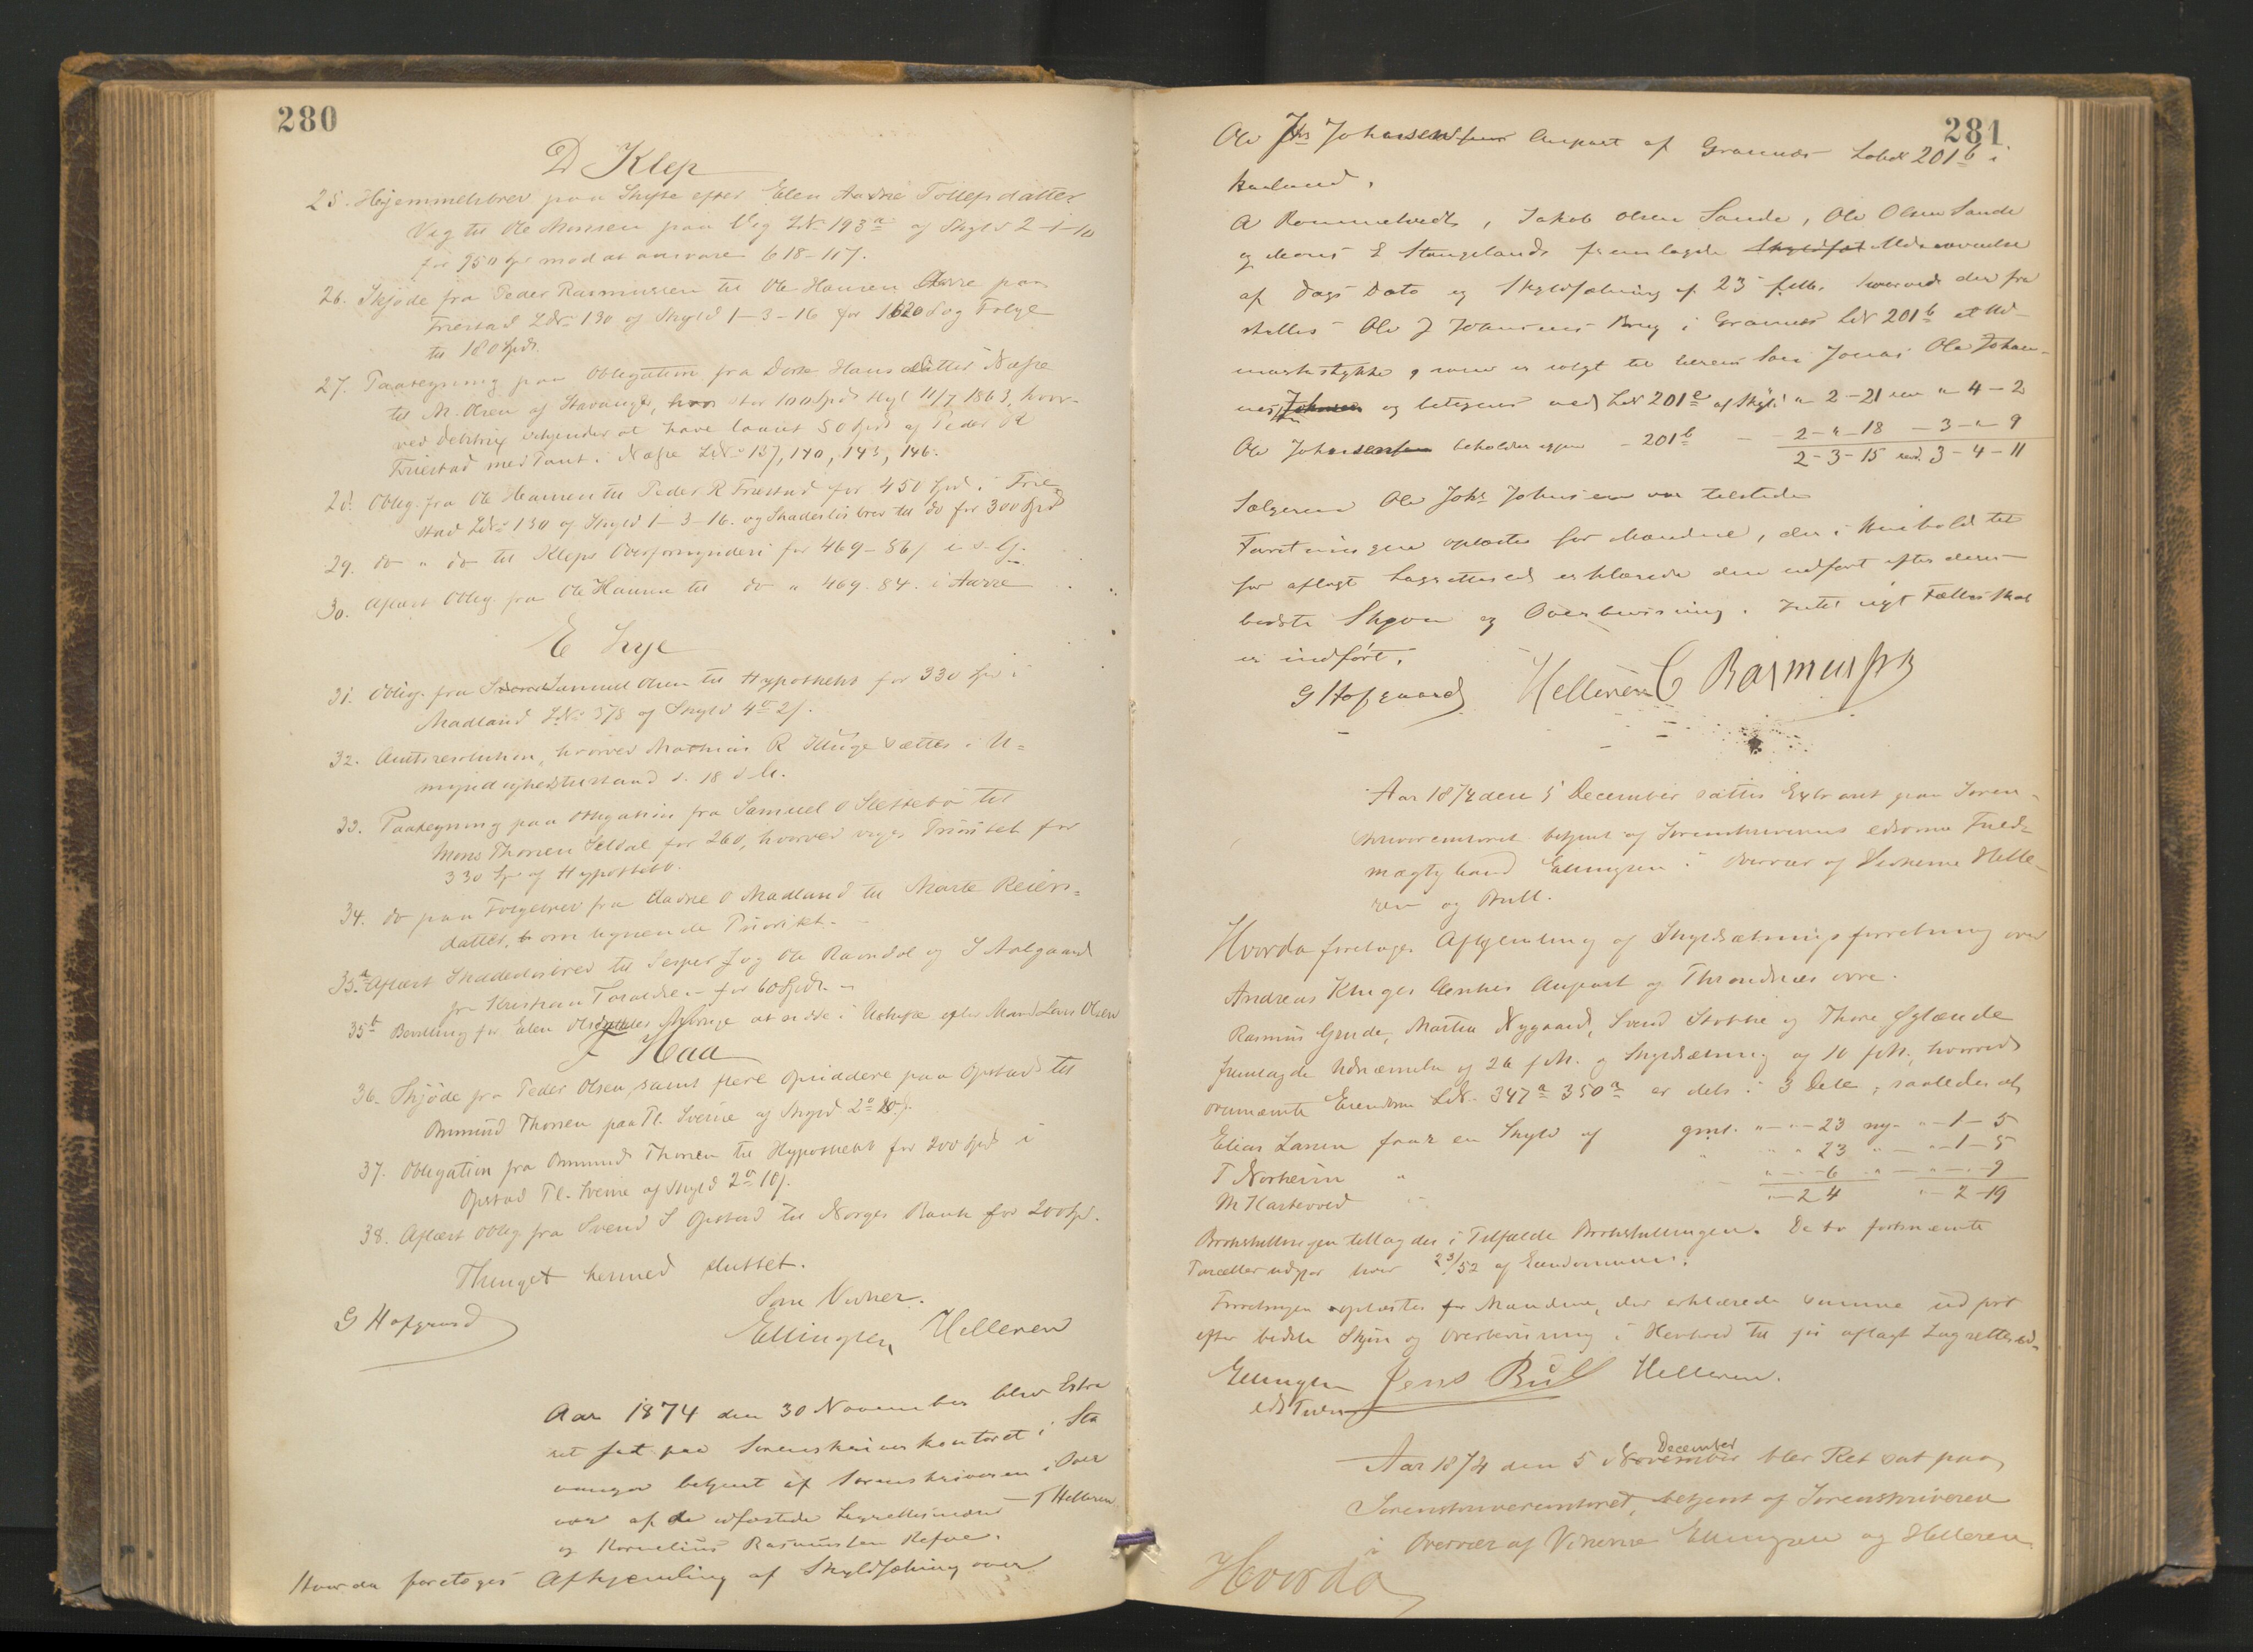 280
D Klep
25. Hjemmelsbrev paa Skifte efter Elen Aadne Tollefsdatter
Vig til Ole Monsen paa Vig LNr 193a af Skyld 2-1-10
for 950 Spd mod at ansvare 618-117.
26. Skjöde fra Peder Rasmussen til Ole Hansen Aarre paa
Friestad LNr 130 af Skyld 1-3-16 for 1620 og Folge
til 180 Spd.
27. Paategning paa Obligation fra Dorte Hansdatter Næsse
til M. Olsen af Stavanger, stor 100 Spd thgl 11/7 1863, hvor-
ved Debitrix erkjender at have laant 50 Spd af Peder R
Friestad med Pant i Næsse LNr 137, 140, 143, 146.
28. Oblig. fra Ole Hansen til Peder R Friestad for 450 Spd i Frie-
stad LNr 130 af Skyld 1-3-16. og Skadeslösbrev til do for 300 Spd
29. do " do til Kleps Overformynderi for 469-86
30. Aflæst Oblig. fra Ole Hansen til do " 469. 84. i Aarre
E Lye
31. Oblig. fra Samuel Olsen til Hypothekb for 330 Spd i
Madland LNr 378 af Skyld 4
32. Amtsresolution, hvorved Mathias R Kluge sættes i U=
myndighedstilstand d. 18 d. M.
33. Paategning paa Obligation fra Samuel O Slettebö til
Mons Thorsen Seldal for 260, hvorved viges Prioritet for
330 Spd af Hypothekb.
34. do paa Folgebrev fra Aadne O Madland til Marte Reiers=
datter, om lignende Prioritet.
35a Aflæst Skadeslösbrev til Jesper J og Ole Ravndal og S Aalgaard
fra Kristian Toraldsen for 60 Spd.
35b Bevilling for Elen Olsdatter at sidde i Uskifte efter Mand Lars Olsen
F Haa
36. Skjöde fra Peder Olsen samt flere Opsiddere paa Opstad til
Ommund Thorsen paa Pl. Sveine af Skyld 2
37. Obligation fra Ommund Thorsen til Hypothekb for 200 Spd i
Opstad Pl. Sveine af Skyld 2
38. Aflæst Oblig fra Svend S Opstad til Norges Bank for 200 Spd.
Thinget hermed sluttet.
G Hofgaard
Som Vidner.
Ellingsen Helleren
Aar 1874 den 30 November blev Extra
ret sat paa Sorenskriverkontoret i Sta
vanger betjent af Sorenskriveren i Over
vær af de edfæstede Lagrettesmænd T Helleren
og Kornelius Rasmussen
Hvorda foretoges Afhjemling af Skyldsætning over
281
Ole Johs Johnsens Anpart af Grannes LobNr 201b i
Haaland.
A Rommetvedt, Jakob Olsen Sande, Ole Olsen Sande
og Mons E Stangeland fremlagde Udnævnelse
af Dags Dato og Skyldsætning af 23 ds. hvorved der fra
skilles Ole J Johnsens Brug i Grannes LNr 201b et Ud-
markstykke, som er solgt til hans Søn Jonas Ole Johan-
nes og betegnes ved LNr 201e af Skyld " 2-21 ny " 4-2
Ole Johnsen beholder igjen - 201b - 2-"-18 - 3-"-9
2-3-15 ny 3-4-11
Sælgeren Ole Johs Johnsen var tilstede
Forretningen oplæstes for Mændene, der i Henhold til
før aflagt Lagrettesed erklærede den udført efter deres
bedste Skjøn og Overbevisning. Intet nyt Fællesskab
er indført.
G Hofgaard Helleren C Rasmussen
Aar 1874 den 5 December sattes Extraret paa Soren-
skrivercontoret betjent af Sorenskriverens edsvorne Fuld=
mægtig Ellingsen i Overvær af Vidnerne Helle-
ren og Bull.
Hvorda foretoges Afhjemling af Skyldsætningsforretning over
Andreas Kluges Enkes Anpart af Throndnæs øvre.
Rasmus Grude, Martin Nygaard, Svend Stokke og Thore Øglænde
fremlagde Udnævnelse af 26 f.M. og Skyldsætning af 10 f.M., hvorved
ovennævnte Eiendom LNr. 347a 350a er delt i 3 Dele, saaledes at
Elias Larsen faar en Skyld af gml. " - " - 23 ny - " - 1 - 5
T Norheim " " " 23 " - " - 1 - 5
M Hartevold " - " - 6 " - " - " - 9
" - 2 4 " - 2 - 19
Brøkstillingen tillagdes i Tilfælde Brøkstillingen. De to førstnævnte
Parceller udgjør hver 23/52 af Eiendommen.
Forretningen oplæstes for Mændene, der erklærede samme udført
efter bedste Skjøn og Overbevisning i Henhold til før aflagt Lagrettesed.
Ellingsen Jens Bull Helleren.
Aar 1874 den 5 December blev Ret sat paa
Sorenskrivercontoret, betjent af Sorenskriveren
i Overvær af Vidnerne Ellingsen og Helleren
Hvorda